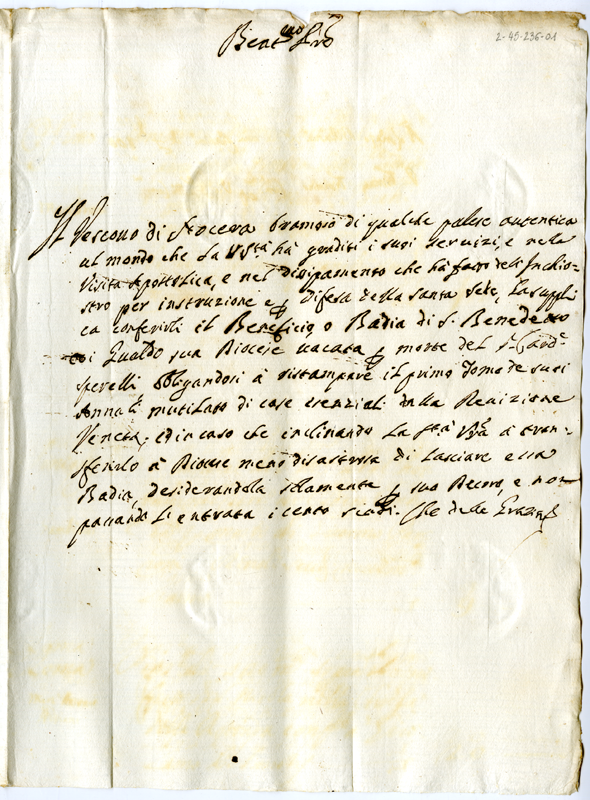 Beat.mo Pre
2-45-236-01
Il Vescovo di Nocera bramoso di qualche palese autentica
al mondo che La V.S.tà hà graditi i suoi servizi, e nella
Visita Apostolica, e nel disipamento che hà fatto del Inchio=
stro per instruzione e difesa della Santa Sede, La suppli
ca conferirli il Beneficio o Badia di S. Benedetto
di Gualdo sua Diocese vacata morte del S.r Card.
Sperelli obligandosi à ristampare il primo Tomo de suoi
Annali mutilato di cose esenziali dalla Revizione
Veneta; et in caso che inclinando La S.tà V.ra à tran=
sferirlo à Diocese meno disastrosa di lasciare essa
Badia, desiderandola solamente suo Decoro, e non
passando l'entrata i cento scudi. Che delle Grazie